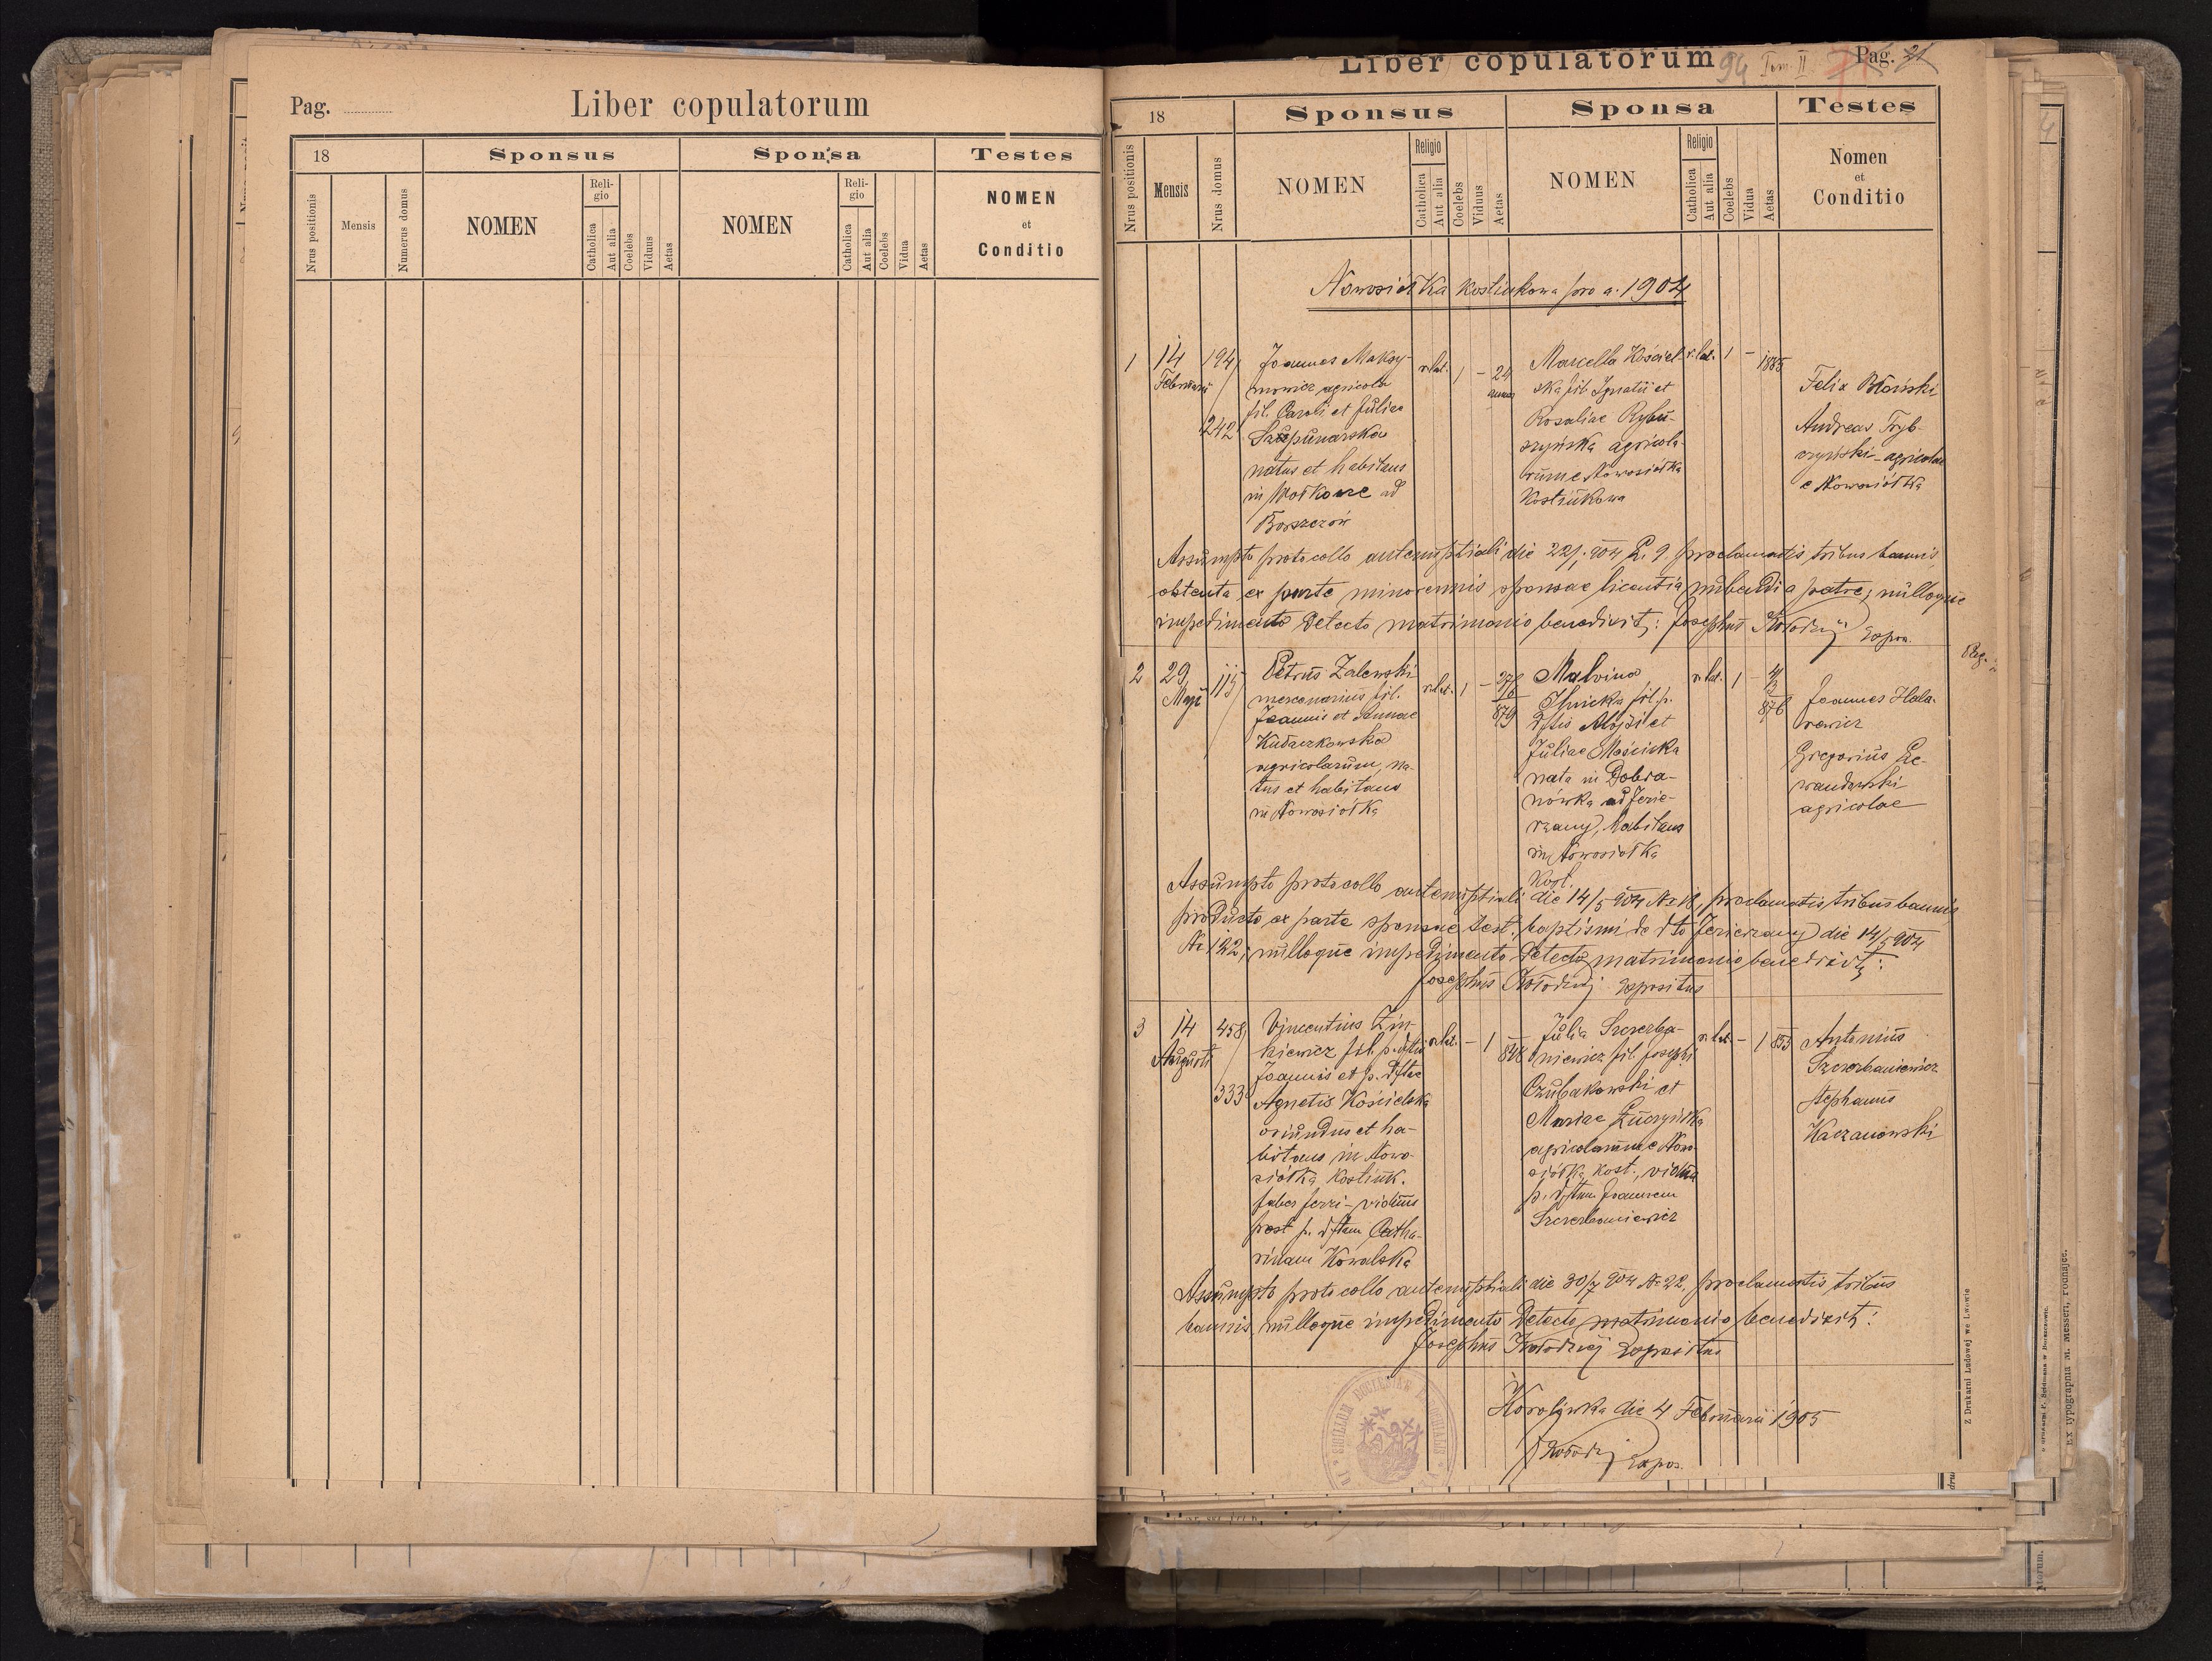 Pag.
Liber copulatorum
18
Sponsus
Sponsa
Testes
Nrus positionis
Mensis
Numerus domus
NOMEN
Reli-
gio
Catholica
Aut alia
Coelebs
Viduus
Aetas
NOMEN
Reli-
gio
Catholica
Aut alia
Coelebs
Vidua
Aetas
NOMEN
et
Conditio
Liber copulatorum
94 Tom. II
Pag. 21
18
Sponsus
Sponsa
Testes
Nrus positionis
Mensis
Nrus domus
NOMEN
Religio
Catholica
Aut alia
Coelebs
Viduus
Aetas
NOMEN
Religio
Catholica
Aut alia
Coelebs
Vidua
Aetas
Nomen
et
Conditio
Nowosiółka Kostiukowa pro a. 1904
1
14
Februarii
194
242
Joannes Maksy-
mowicz agricola
fil. Caroli et Juliae
natus et habitans
in Wołkowce ad
Borszczów
r. lat.
1
-
24
annos
Marcella Kościel-
ska fil. Ignatii et
Rosaliae Rybu-
szyńska agricola-
rum e Nowosiółka
Kostiukowa
r. lat.
1
-
1885
Felix Błoński
Andreas Tryb-
czyński - agricolae
e Nowosiółka
Assumpto protocollo antenuptiali die 22/1 904 L. 9 proclamatis tribus bannis,
obtenta ex parte minorennis sponsae licentia nubendi a patre; nulloque
impedimento detecto matrimonio benedixit: Josephus Kołodziej Expos.
2
29
Maji
115
Petrus Zalewski
mercenarius fil.
Joannis et Annae
Kudaczkowska
agricolarum, na-
tus et habitans
in Nowosiółka
r. lat.
1
-
879
Malvina
fil. p.
dftis Aloysii et
Juliae Mościcka
nata in Dobra-
nówka ad Jezie-
rzany, habitans
in Nowosiółka
Kost.
r. lat.
1
-
4/3
876
Joannes Hala-
rewicz
Gregorius Le-
wandowski
agricolae
Assumpto protocollo antenuptiali die 14/5 904 No 18, proclamatis tribus bannis
producto ex parte sponsae test. baptismi de dto Jezierzany die 14/5 904
No 132; nulloque impedimento detecto matrimonio benedixit:
Josephus Kołodziej Expositus
3
14
Augusti
458
333
Vincentius Zin-
kiewicz fil. p. dfti
Joannis et p. dftae
Agnetis Kościelska
oriundus et ha-
bitans in Nowo-
siółka Kostiuk.
faber ferri - viduus
post p. dftam Catha-
rinam Kowalska
r. lat.
-
1
848
Julia Szczerba-
niewicz fil. Josephi
Czubakowski et
Mariae Zuczyńska
agricolarum e Nowo-
siółka Kost., vidua
p. dftum Joannem
Szczerbaniewicz
r. lat.
-
1
853
Antonius
Szczerbaniewicz
Stephanus
Kaczanowski
Assumpto protocollo antenuptiali die 30/7 904 No 22, proclamatis tribus
bannis, nulloque impedimento detecto matrimonio benedixit:
Josephus Kołodziej Expositus
Korolówka die 4 Februarii 1905
J Kołodziej Expos.
Z Drukarni Ludowej we Lwowie